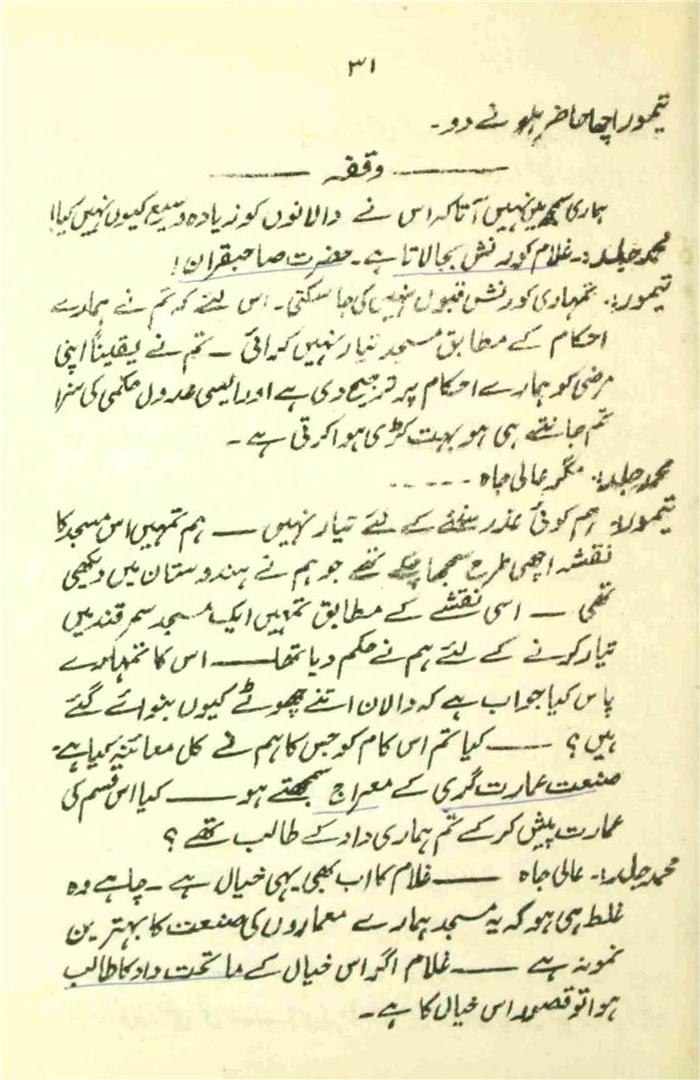 ۳۱
تیمور: اچھا حاضر ہونے دو۔
——— وقفہ ———
ہماری سمجھ میں نہیں آتا کہ اس نے دالانوں کو زیادہ وسیع کیوں نہیں کیا!
محمد جلد:۔ غلام کورنش بجا لاتا ہے۔ حضرت صاحبقران!
تیمور:۔ تمہاری کورنش قبول نہیں کی جا سکتی۔ اس لئے کہ تم نے ہمارے
احکام کے مطابق مسجد تیار نہیں کرائی ـــ تم نے یقیناً اپنی
مرضی کو ہمارے احکام پر ترجیح دی ہے اور ایسی عدول حکمی کی سزا
تم جانتے ہی ہو بہت کڑی ہوا کرتی ہے۔
محمد جلد:۔ مگر عالی جاہ ۔۔۔۔۔۔
تیمور:۔ ہم کوئی عذر سننے کے لئے تیار نہیں ـــ ہم تمہیں اس مسجد کا
نقشہ اچھی طرح سمجھا چکے تھے جو ہم نے ہندوستان میں دیکھی
تھی ـــ اسی نقشے کے مطابق تمہیں ایک مسجد سمرقند میں
تیار کرنے کے لئے ہم نے حکم دیا تھا ـــ اس کا تمہارے
پاس کیا جواب ہے کہ دالان اتنے چھوٹے کیوں بنوائے گئے
ہیں؟ ـــ کیا تم اس کام کو جس کا ہم نے کل معائنہ کیا ہے۔
صنعت عمارت گری کے معراج سمجھتے ہو ـــ کیا اس قسم کی
عمارت پیش کر کے تم ہماری داد کے طالب تھے؟
محمد جلد:۔ عالی جاہ ـــ غلام کا اب بھی یہی خیال ہے ۔ چاہے وہ
غلط ہی ہو کہ یہ مسجد ہمارے معماروں کی صنعت کا بہترین
نمونہ ہے ـــ غلام اگر اس خیال کے ماتحت داد کا طالب
ہوا تو قصور اس خیال کا ہے۔